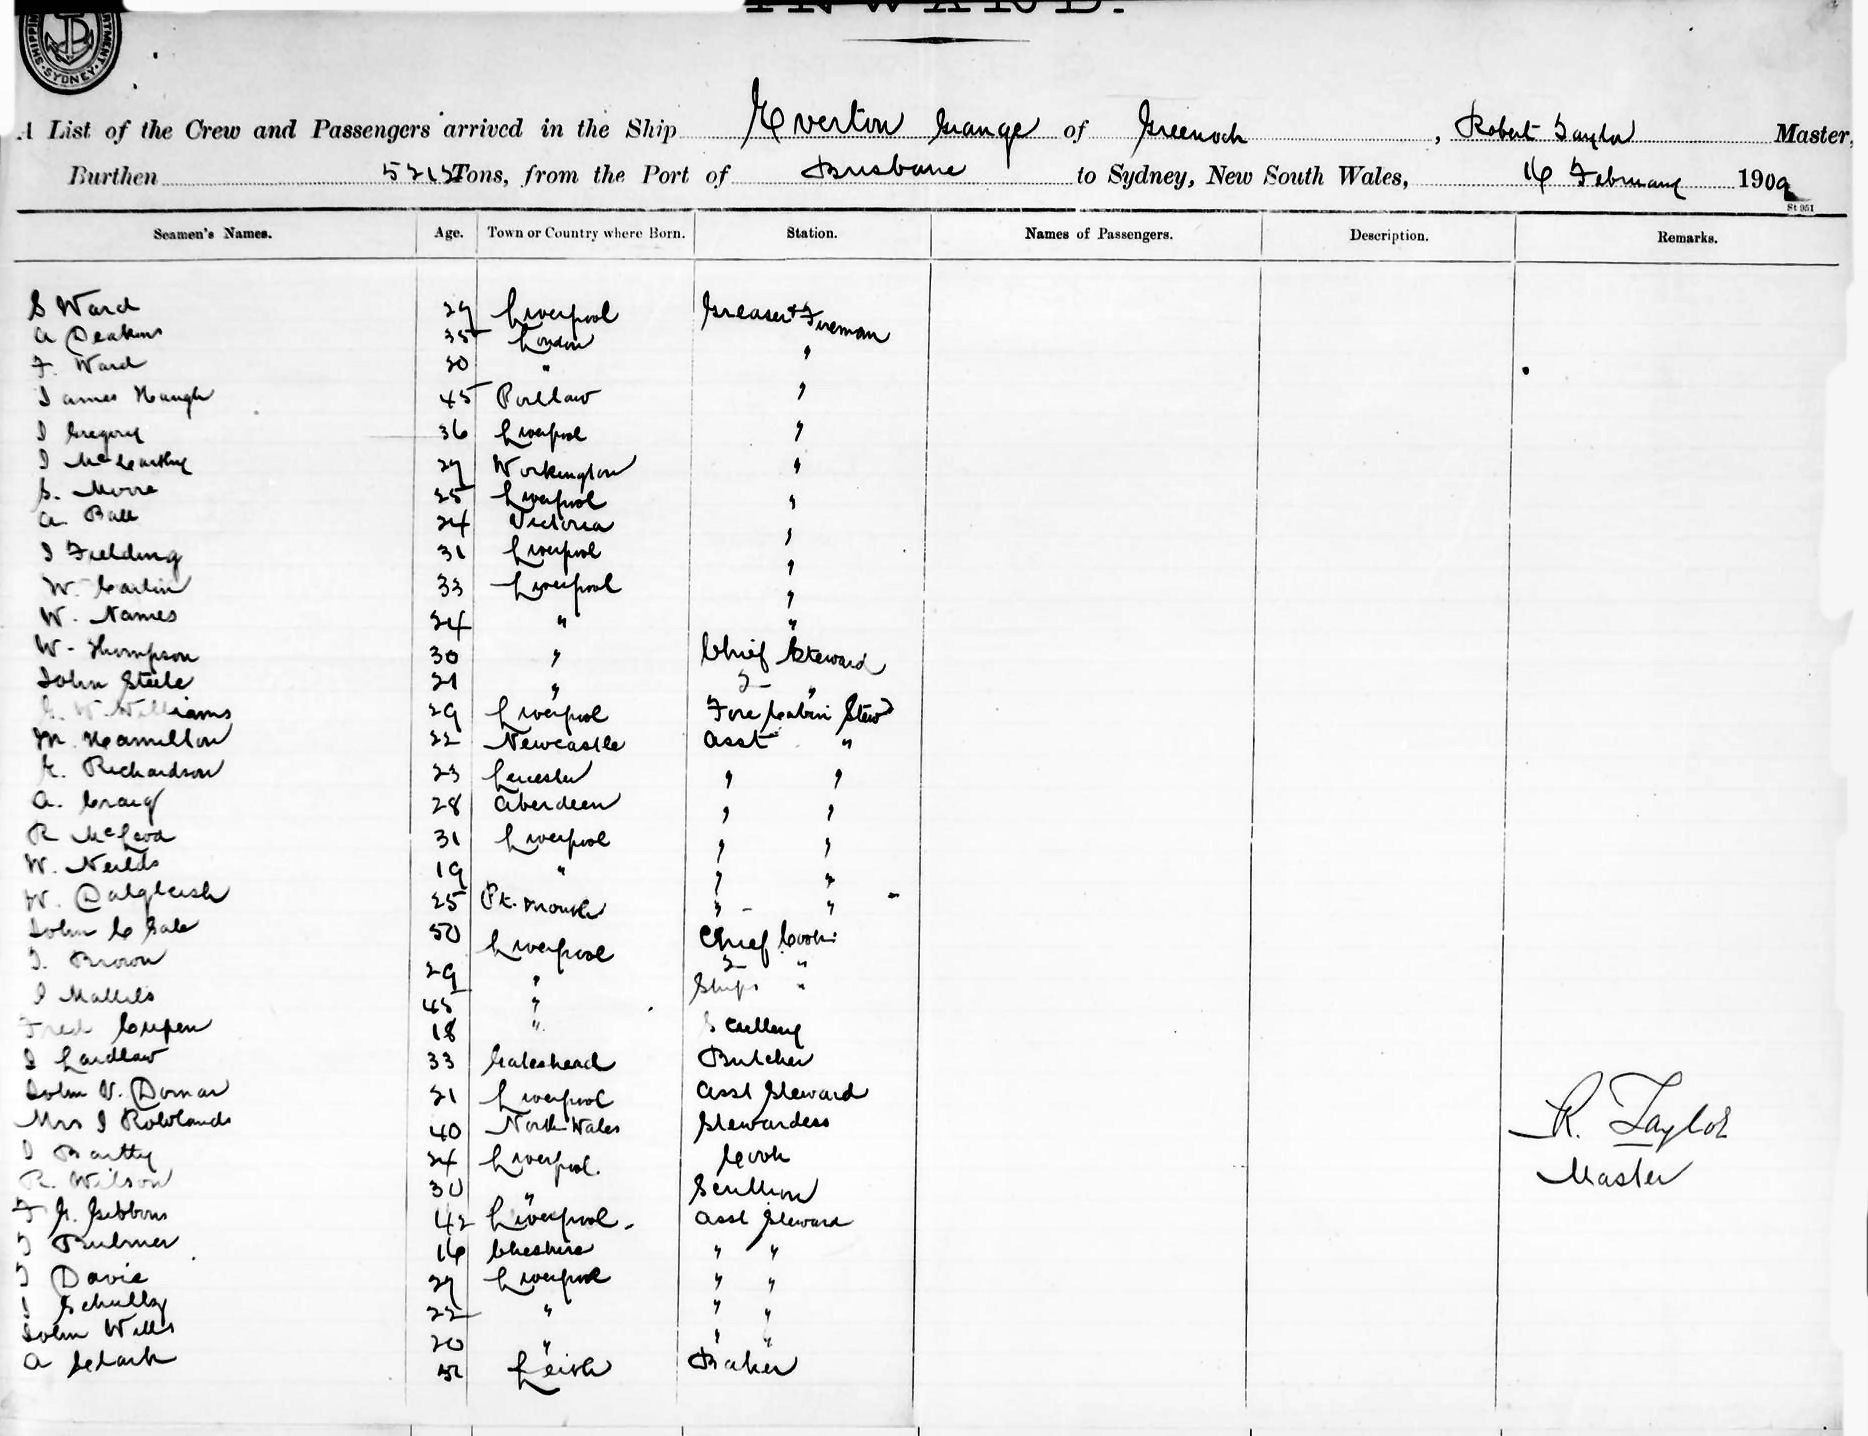 INWARD.
SYDNEY
A List of the Crew and Passengers arrived in the Ship Everton Grange of Greenock, Robert Taylor Master,
Burthen 5212 Tons, from the Port of Brisbane to Sydney, New South Wales, 16 February 1909
St 951
Seamen's Names. Age. Town or Country where Born. Station. Names of Passengers. Description. Remarks.
S Ward 29 Liverpool Greaser & Fireman
A Deakins 35 London "
F. Ward 30 " "
James Haugh 45 Portlaw "
J Gregory 36 Liverpool "
J McCarthy 29 Workington "
S. Moore 25 Liverpool "
A. Ball 24 Victoria "
J Fielding 31 Liverpool "
W. Carlin 33 Liverpool "
W. Names 24 " "
W. Thompson 30 " Chief Steward
John Steele 21 " 2 "
G. W Williams 29 Liverpool Fore Cabin Stewd
M. Hamilton 22 Newcastle Asst "
G. Richardson 23 Leicester " "
A. Craig 28 Aberdeen " "
R McLeod 31 Liverpool " "
W. Neilds 19 " " "
W. Dalgleish 25 " "
John C Gale 50 Liverpool Chief Cook
J. Brown 29 " 2 "
J 45 " Ships "
Fred 18 " Scullery
J Laidlaw 33 Gateshead Butcher
John V. Domar 21 Liverpool Asst Steward
Mrs J Rowlands 40 North Wales Stewardess
J Bartty 24 Liverpool. Cook
R. Wilson 30 " Scullion
F G. Gibbons 42 Liverpool Asst Steward
J Bulmer 16 Cheshire " "
J Davie 29 Liverpool " "
J 22 " " "
John Wills 20 " " "
A Leith Baker
R. Taylor
Master